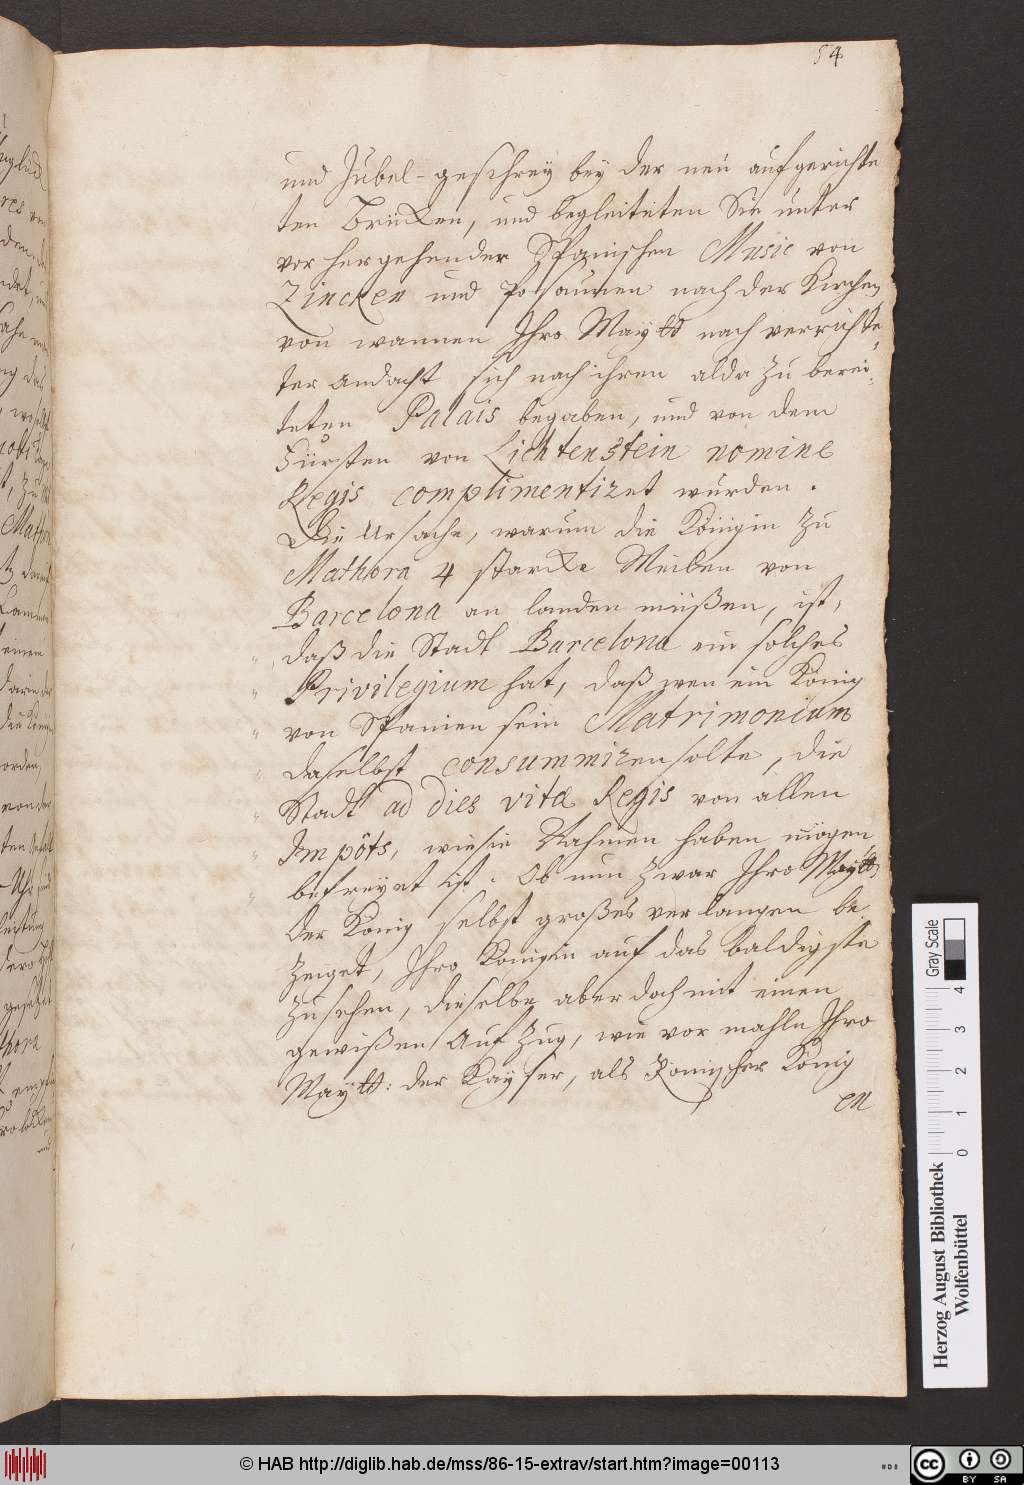 54
und Jubel-geschrey bey der neu aufgerichte
ten Brücken, und begleiteten Sie unter
vorhergehender Spanischen Music von
Zincken und Posaunen nach der Kirchen
von wannen Ihro Maytt nach verrichte,
ter Andacht sich nach ihren alda zu berei,
teten Palais begaben, und von dem
Fürsten von Lichtenstein nomine
Regis complimentiret wurden.
Die Ursache, warum die Königin zu
Mathora 4 starcke Meilen von
Barcelona an landen müßen, ist,
daß die Stadt Barcelona ein solches
Privilegium hat, daß wen ein König
von Spanien sein Matrimonium
daselbst consummiren solte, die
Stadt ad dies vitæ Regis von allen
Impôts, wie sie Nahmen haben mögen
befreyet ist. Ob nun zwar Ihro Maytt
der König selbst großes verlangen be
zeiget, Ihro Königin auf das baldigste
zu sehen, dieselbe aber doch mit einen
gewißen Aufzug, wie vor mahln Ihro
Maytt: der Kayser, als Römischer König
en
Herzog August Bibliothek
Wolfenbüttel
Gray Scale
0 1 2 3 4
© HAB http://diglib.hab.de/mss/86-15-extrav/start.htm?image=00113
cc BY SA